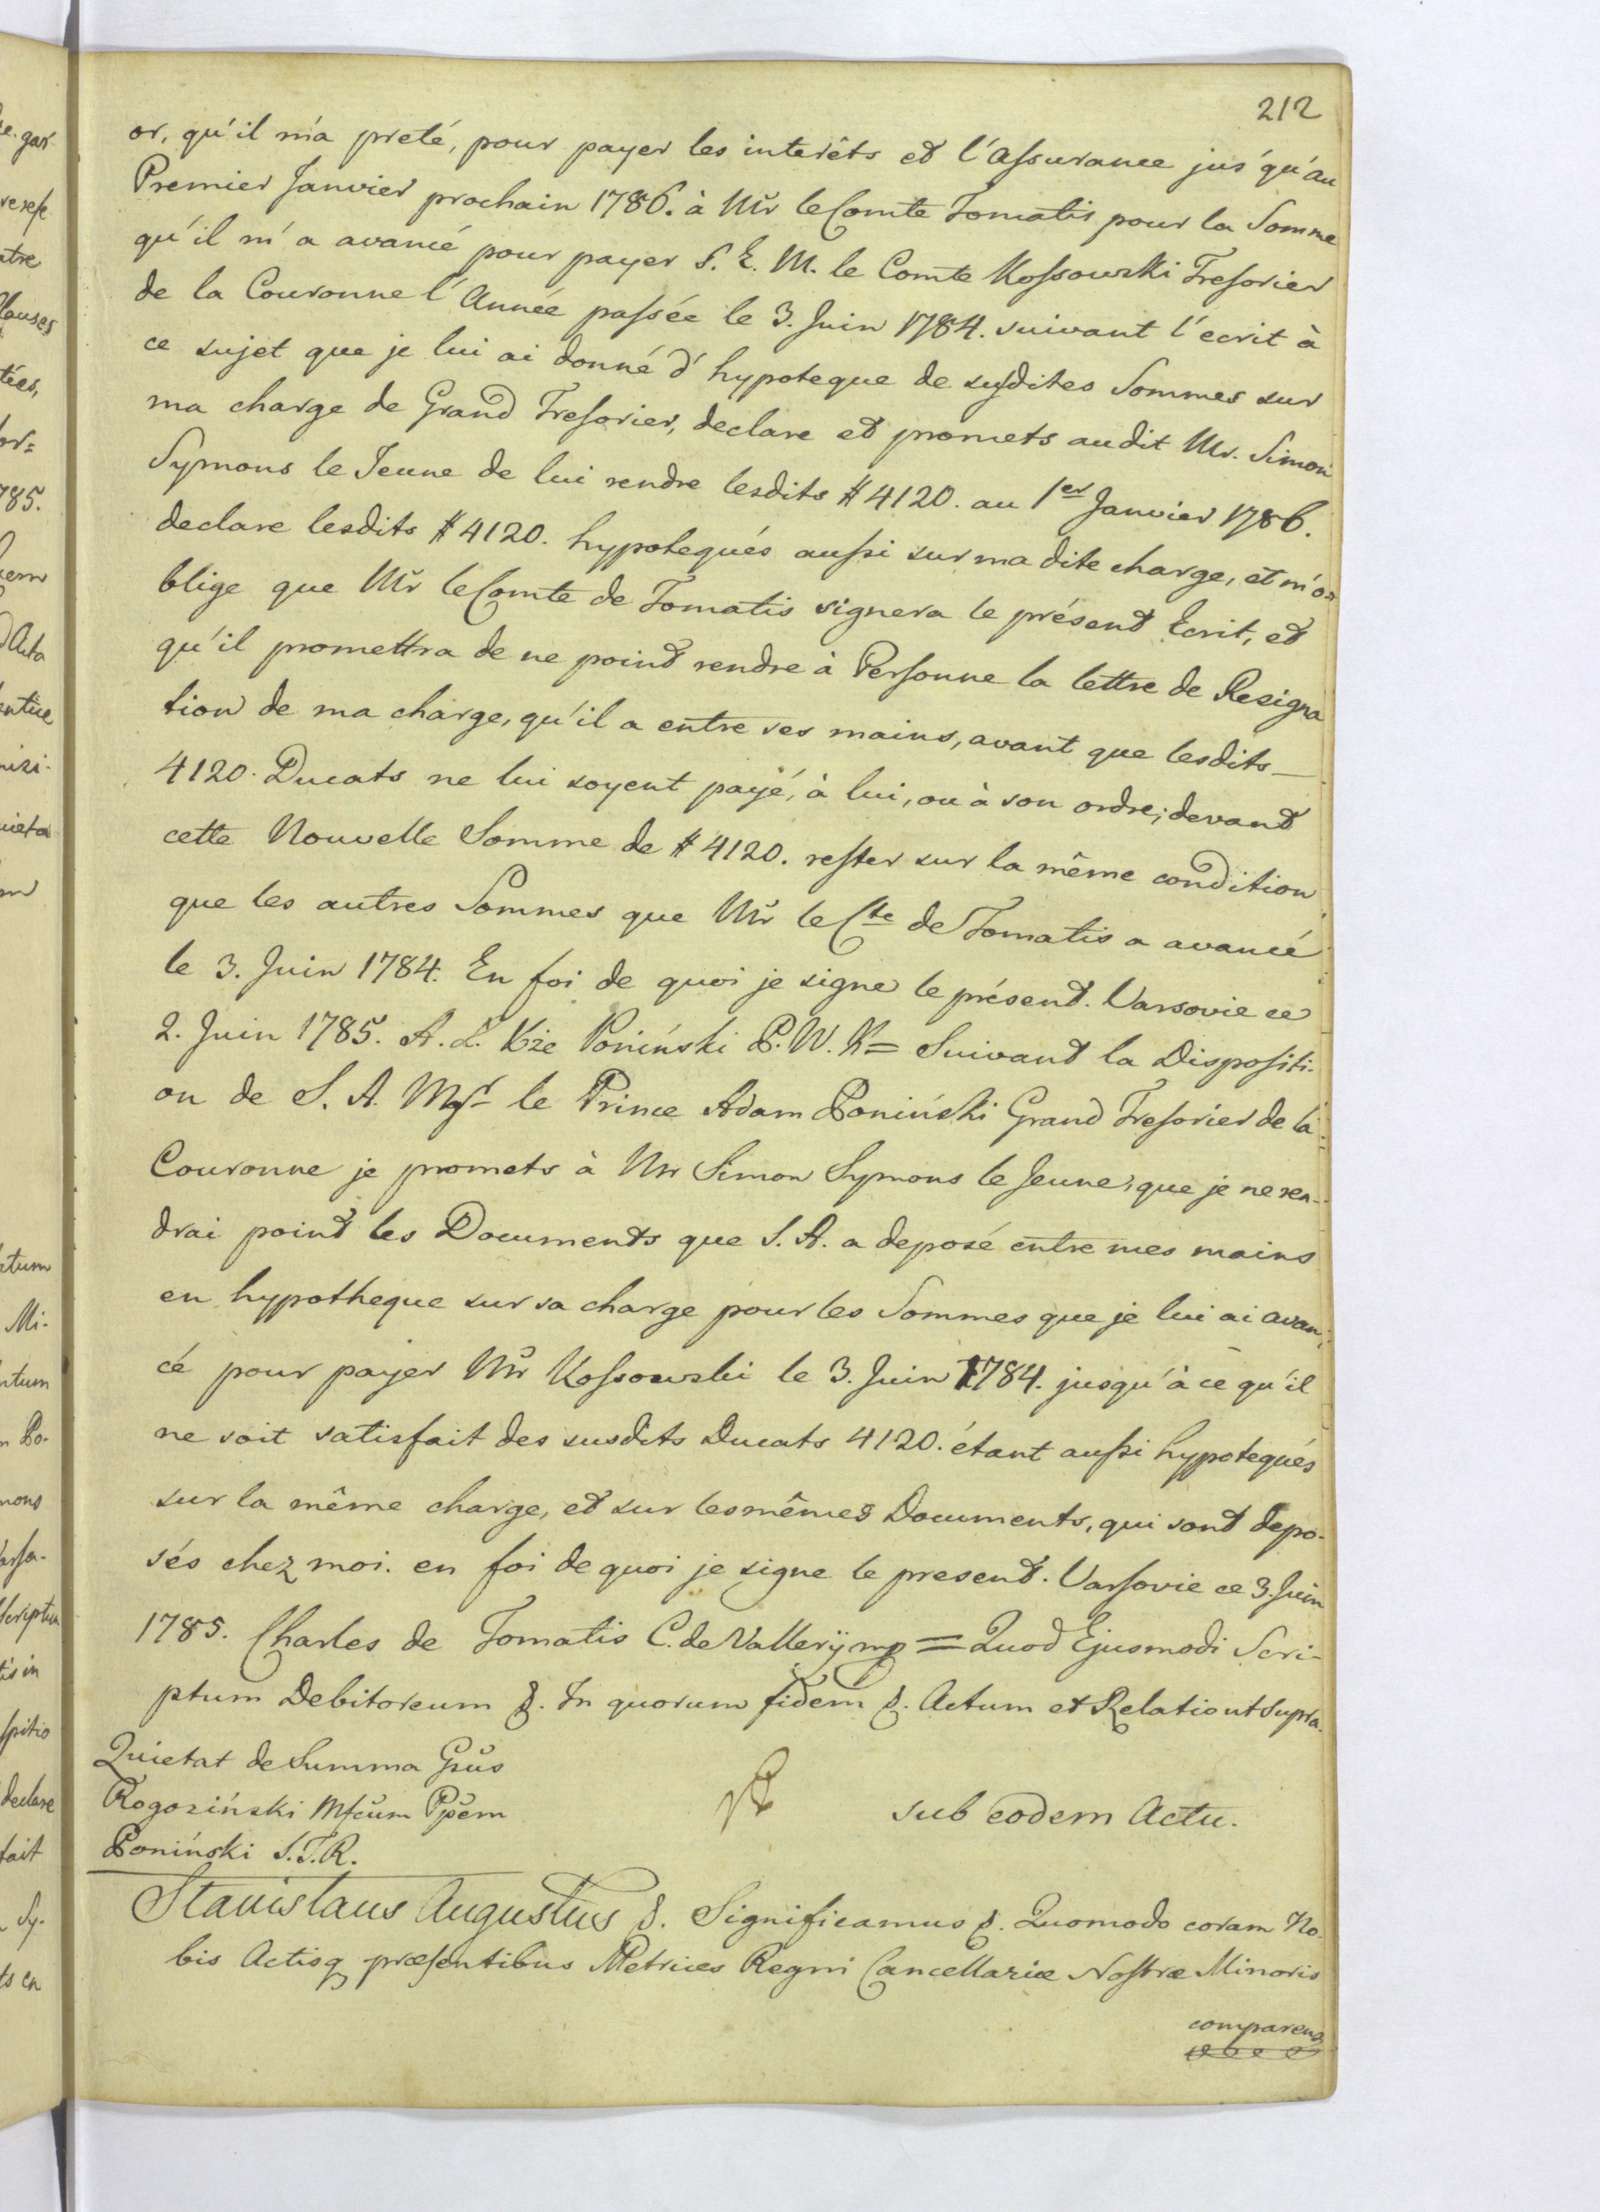 212
or, qu'il m'a preté, pour payer les interêts et l'Assurance jus'qu'au
Premier Janvier prochain 1786. à Mr le Comte Tomatis pour la Somme
qu'il m'a avancé pour payer S. E. M. le Comte Kossowski Tresorier
de la Couronne l'Année passée le 3. Juin 1784. suivant l'ecrit à
ce sujet que je lui ai donné d'hypoteque de susdites Sommes sur
ma charge de Grand Tresorier, declare et promets audit Mr. Simon
Symons le Jeune de lui rendre lesdits # 4120. au 1er Janvier 1786.
declare lesdits # 4120. hypotequés aussi sur ma dite charge, et m'o=
blige que Mr le Comte de Tomatis signera le présent Ecrit, et
qu'il promettra de ne point rendre à Personne la lettre de Resigna
tion de ma charge, qu'il a entre ses mains, avant que lesdits —
4120. Ducats ne lui soyent payé, à lui, ou à son ordre; devant
cette Nouvelle Somme de # 4120. rester sur la même condition
que les autres Sommes que Mr le Cte de Tomatis a avancé
le 3. Juin 1784. En foi de quoi je signe le présent. Varsovie ce
2. Juin 1785. A. Ł. Xże Poniński P. W. K = Suivant la Dispositi-
on de S. A. Mgr le Prince Adam Poniński Grand Tresorier de la
Couronne je promets à Mr Simon Symons le Jeune, que je ne ren-
drai point les Documents que S. A. a deposé entre mes mains
en hypotheque sur sa charge pour les Sommes que je lui ai avan-
cé pour payer Mr Kossowski le 3. Juin 1784. jusqu'à ce qu'il
ne soit satisfait des susdits Ducats 4120. étant aussi hypotequés
sur la même charge, et sur les mêmes Documents, qui sont depo-
sés chez moi. en foi de quoi je signe le present. Varsovie ce 3. Juin
1785. Charles de Tomatis C. de Vallerÿ mp = Quod Ejusmodi Scri-
ptum Debitoreum &. In quorum fidem &. Actum et Relatio ut supra.
Quietat de Summa Gsus
Rogoziński Mfcum Ppem
Poniński S.T.R.
sub eodem Actu.
Stanislaus Augustus &. Significamus &. Quomodo coram No-
bis Actisq præsentibus Metrices Regni Cancellariæ Nostræ Minoris
comparens